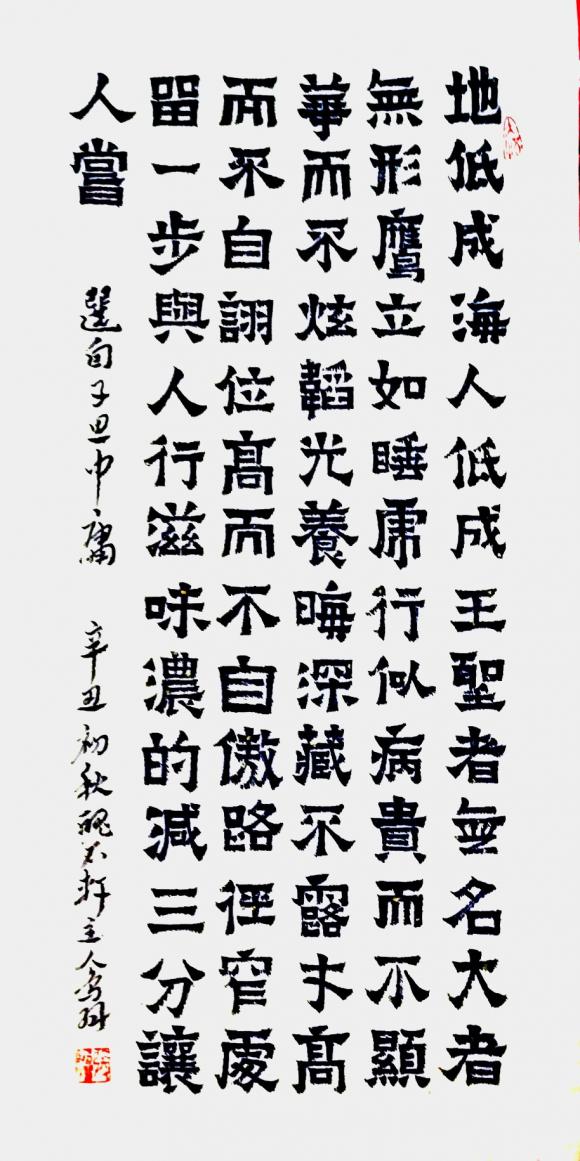 地低成海人低成王聖者無名大者
無形鷹立如睡虎行似病貴而不顯
華而不炫韜光養晦深藏不露才髙
而不自詡位髙而不自傲路徑窄處
留一步與人行滋味濃的減三分讓
人嘗
選自子思中庸 辛丑初秋 主人